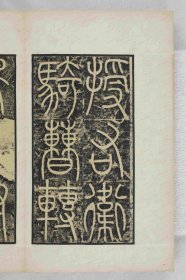 授右衛
騎曹轉